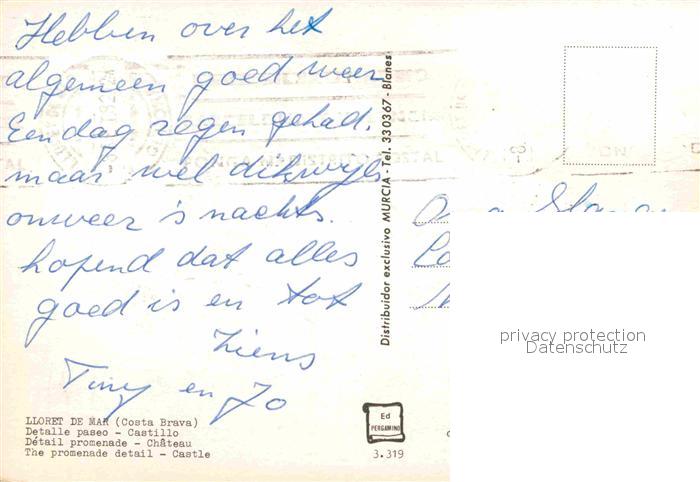 Hebben over het
algemeen goed weer
Een dag regen gehad.
maar wel dikwijls
onweer 's nachts.
hopend dat alles
goed is en tot
ziens
Tiny en Jo
LLORET DE MAR (Costa Brava)
Detalle paseo - Castillo
Détail promenade - Château
The promenade detail - Castle
Distribuidor exclusivo MURCIA - Tel. 330367 - Blanes
Ed
PERGAMINO
3.319
privacy protection
Datenschutz